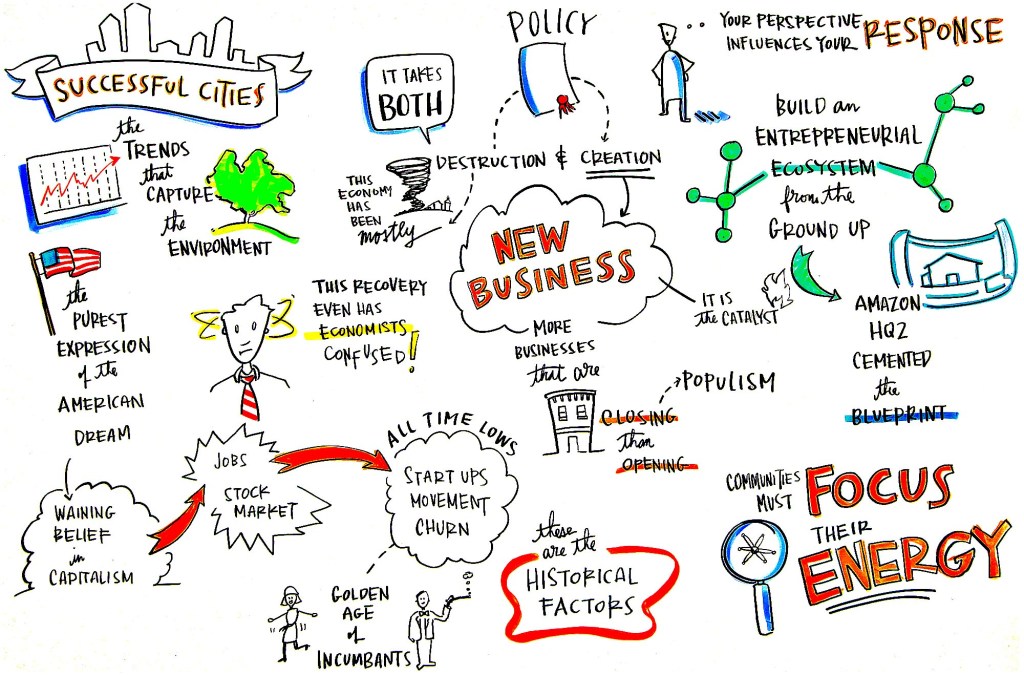 SUCCESSFUL CITIES
the
TRENDS
that
CAPTURE
the
ENVIRONMENT
the
PUREST
EXPRESSION
of the
AMERICAN
DREAM
WAINING
BELIEF
in
CAPITALISM
JOBS
STOCK
MARKET
THIS RECOVERY
EVEN HAS
ECONOMISTS
CONFUSED!
ALL TIME LOWS
START UPS
MOVEMENT
CHURN
GOLDEN
AGE
of
INCUMBANTS
IT TAKES
BOTH
POLICY
DESTRUCTION & CREATION
THIS
ECONOMY
HAS
BEEN
mostly
NEW
BUSINESS
MORE
BUSINESSES
that are
CLOSING
than
OPENING
POPULISM
these
are the
HISTORICAL
FACTORS
IT IS
the CATALYST
YOUR PERSPECTIVE
INFLUENCES YOUR RESPONSE
BUILD an
ENTREPRENEURIAL
ECOSYSTEM
from the
GROUND UP
AMAZON
HQ2
CEMENTED
the
BLUEPRINT
COMMUNITIES
MUST FOCUS
THEIR
ENERGY